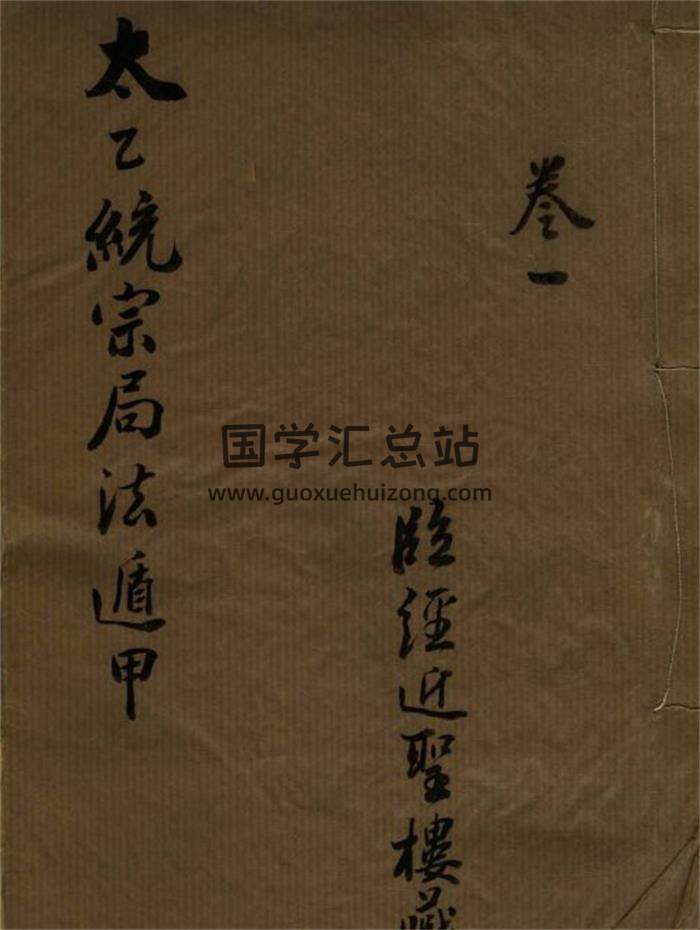 卷一
臨經近聖樓藏
太乙統宗局法遁甲
国学汇总站
www.guoxuehuizong.com